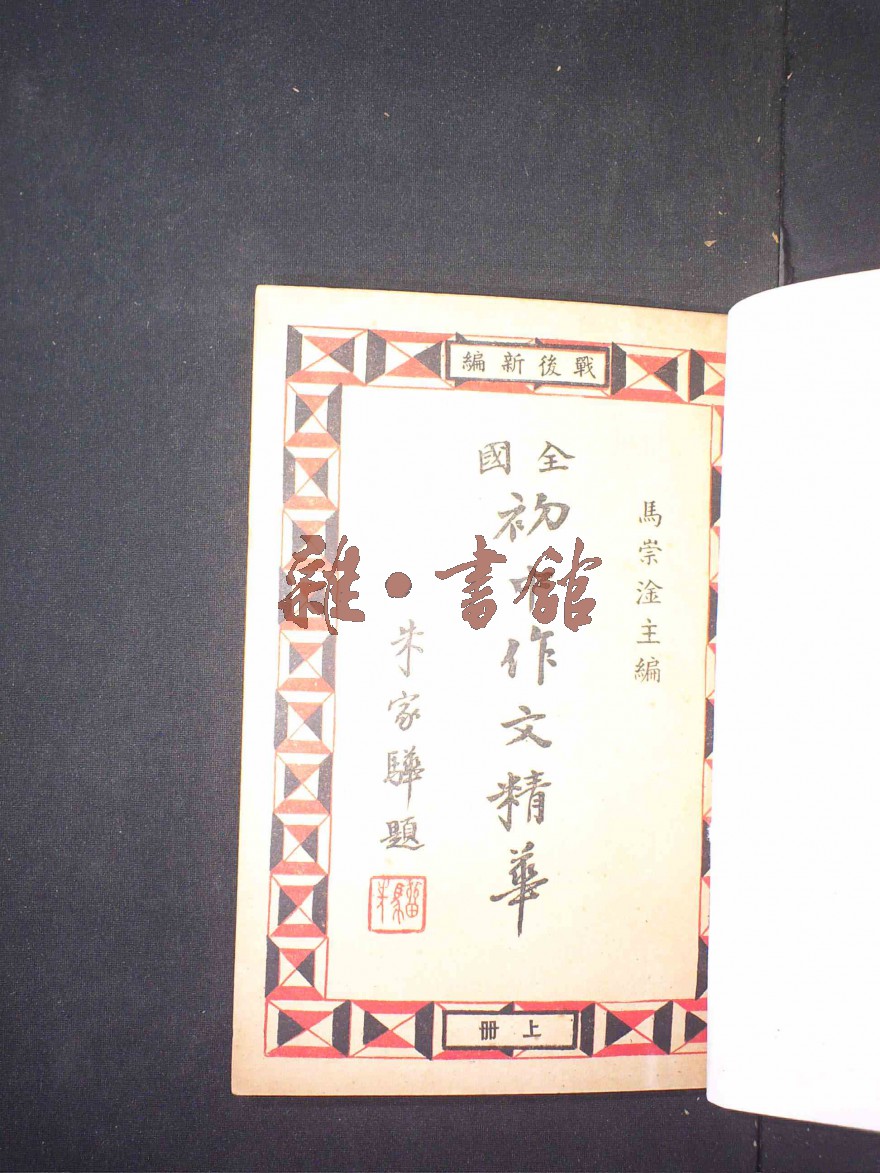 戰後新編
全國
初中作文精華
馬崇淦主編
朱家驊題
上冊
雜·書館